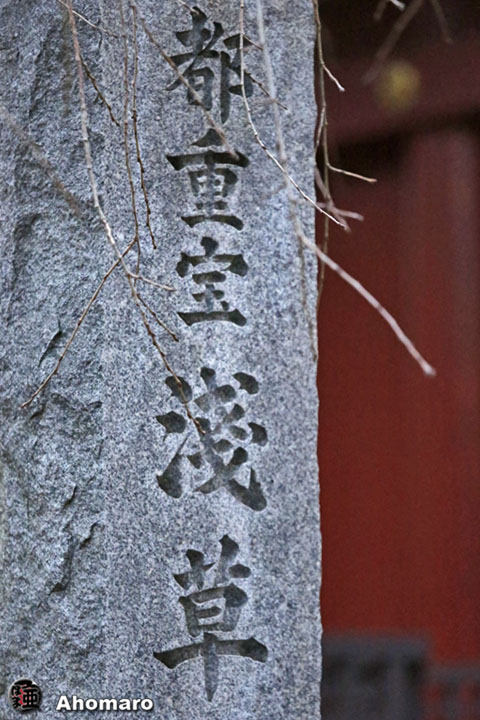 都重宝浅草
Ahomaro